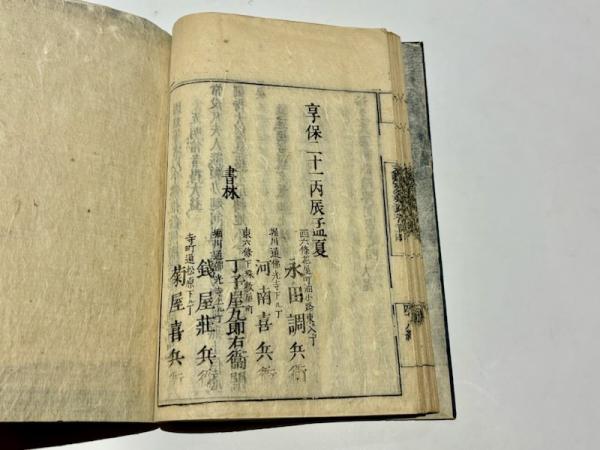 享保二十一丙辰孟夏
西六條花屋町油小路東入丁
永田調兵衛
堀川通佛光寺下ル丁
河南喜兵衛
書林
東六條下珠数屋町
丁子屋九郎右衛門
堀川通佛光寺上ル丁
錢屋莊兵衛
寺町通松原下ル丁
菊屋喜兵衛